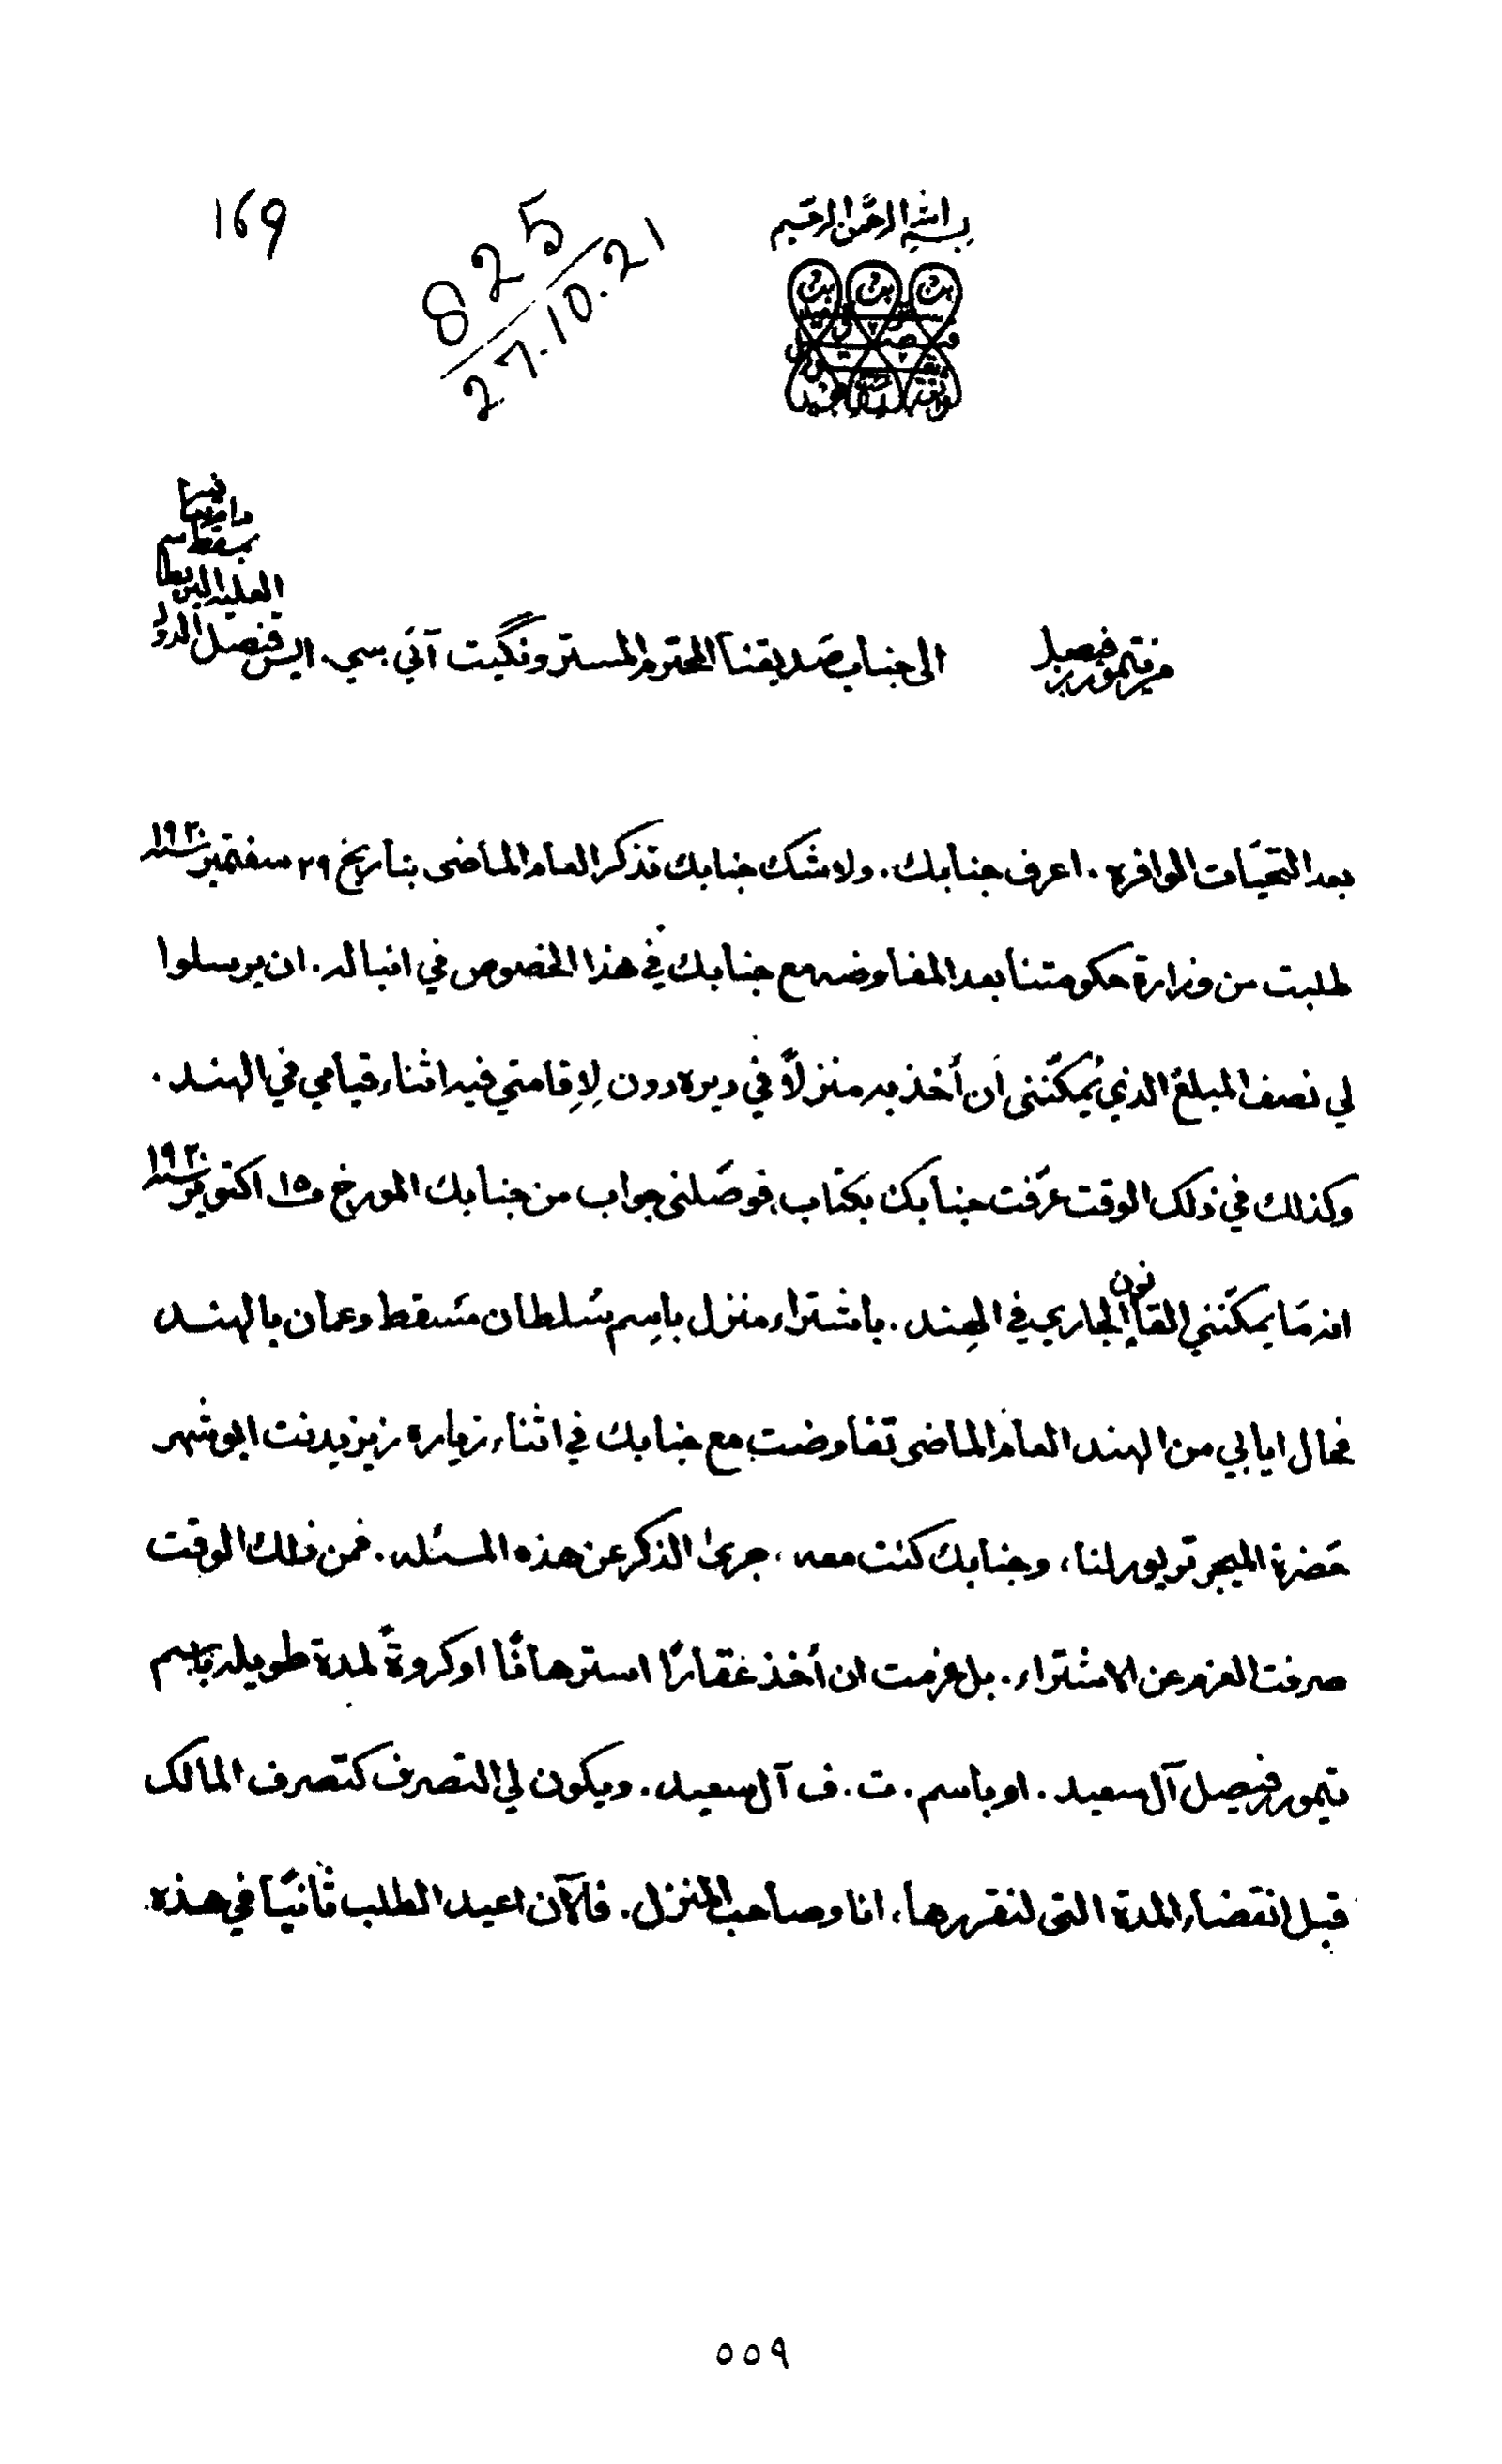 169
825
27.10.21
بسم الله الرحمن الرحيم
من تيمور بن فيصل
الى جناب صديقنا المحترم المستر ونگيت آئي. سي. ايس قنصل الدولة
العلية البريطانية بمسقط
بعد التحيّات الوافره. اعرف جنابك. ولا شك جنابك تذكر العام الماضى بتاريخ ٢٩ سفتمبر سنه ١٩٢٠
طلبت من وزارة حكومتنا بعد المفاوضه مع جنابك في هذا الخصوص في انباله. ان يرسلوا
لي نصف المبلغ الذي يُمكّننى أن أخذ به منزلاً في ديره دون لِإقامتي فيه اثناء قيامي في الهند.
وكذلك في ذلك الوقت عرّفت جنابك بكتاب، فوصَلنى جواب من جنابك المورخ ١٥ اكتوبر سنه ١٩٢٠
انه مَا يمكّنني القانون الجاري في الهِند. باشتراء منزل باسِم سُلطان مَسقط وعمان بالهند
فحال ايابي من الهند العام الماضى تفاوضت مع جنابك في اثناء زياره زيزيدنت ابوشهر
حَضرة الميجر تريور لنا، وجنابك كنت معه، جرىٰ الذكر عن هذه المسئله. فمن ذلك الوقت
صرفت العزم عن الاشتراء. بل عزمت ان أخذ عقارًا استرهانًا او كروةً لمدة طويله باسم
تيمور فيصل آل سعيد. او باسم. ت. ف آل سعيد. ويكون لي التصرف كتصرف المالك
قبل انقضاء المدة التى لنقررها، انا وصاحب المنزل. فالآن اعيد الطلب ثانيًا في هذه
٥٥٩